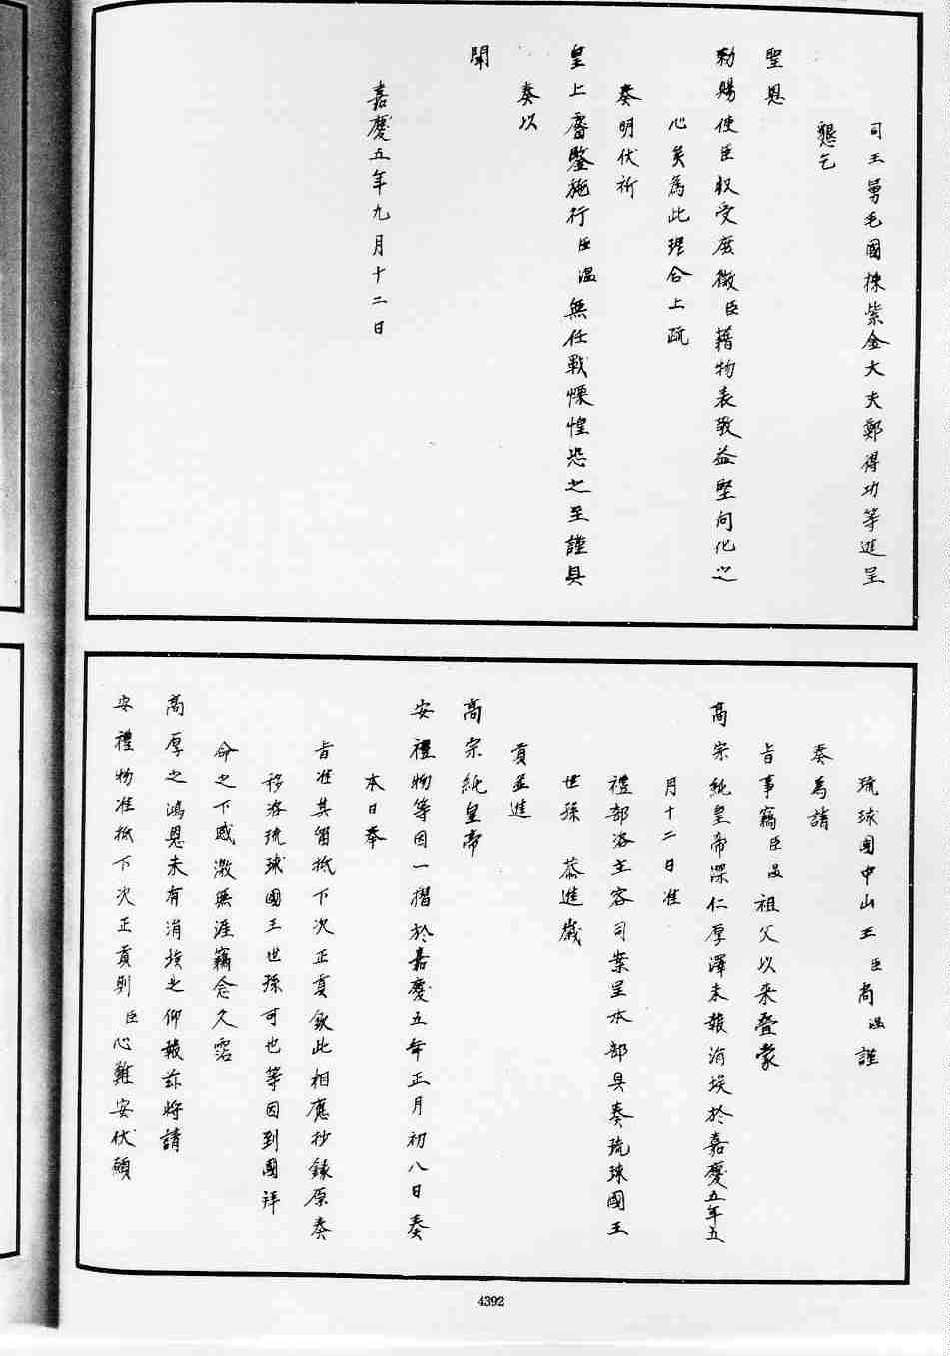 司王舅毛國棟紫金大夫鄭得功等進呈
懇乞
聖恩
勅賜使臣収受庶微臣藉物表敬益堅向化之
心矣為此理合上疏
奏明伏祈
皇上睿鑒施行臣温無任戰慄惶恐之至謹具
奏以
聞
嘉慶五年九月十二日
琉球國中山王臣尚温謹
奏為請
旨事竊臣温祖父以来叠蒙
高宗純皇帝深仁厚澤未報涓埃於嘉慶五年五
月十二日准
禮部洛主客司案呈本部具奏琉球國王
世孫 恭進歲
貢並進
高宗純皇帝
安禮物等因一摺於嘉慶五年正月初八日奏
本日奉
旨准其留抵下次正貢欽此相應抄錄原奏
移洛琉球國王世孫可也等因到國拜
命之下感激無涯竊念久霑
高厚之鴻恩未有涓埃之仰報茲將請
安禮物准抵下次正貢則臣心難安伏願
4392